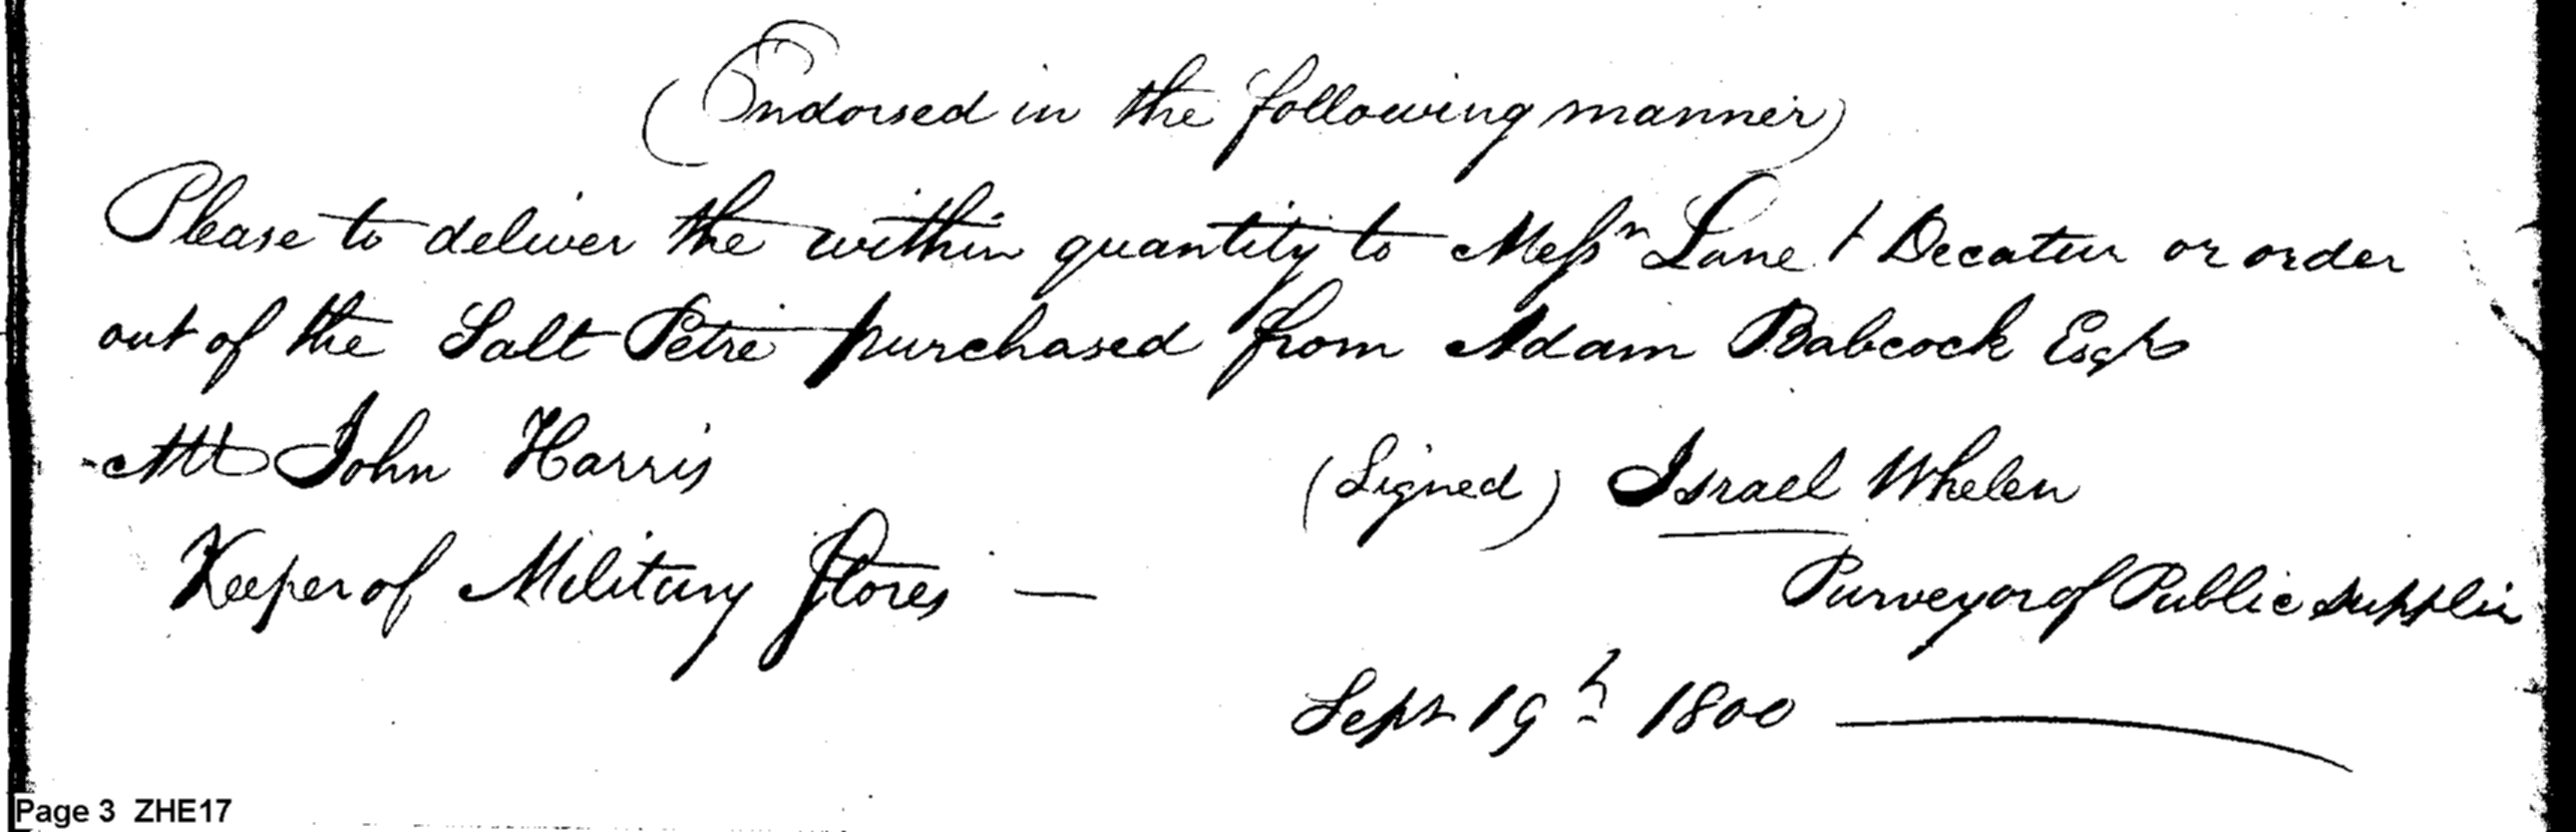 (Endorsed in the following manner)
Please to deliver the within quantity to Messrs Lane & Decatur or order
out of the Salt Petre purchased from Adam Babcock Esqr
Mr John Harris
(Signed) Israel Whelen
Keeper of Military Stores —
Purveyor of Public Supplies
Sept 19th 1800
Page 3 ZHE17